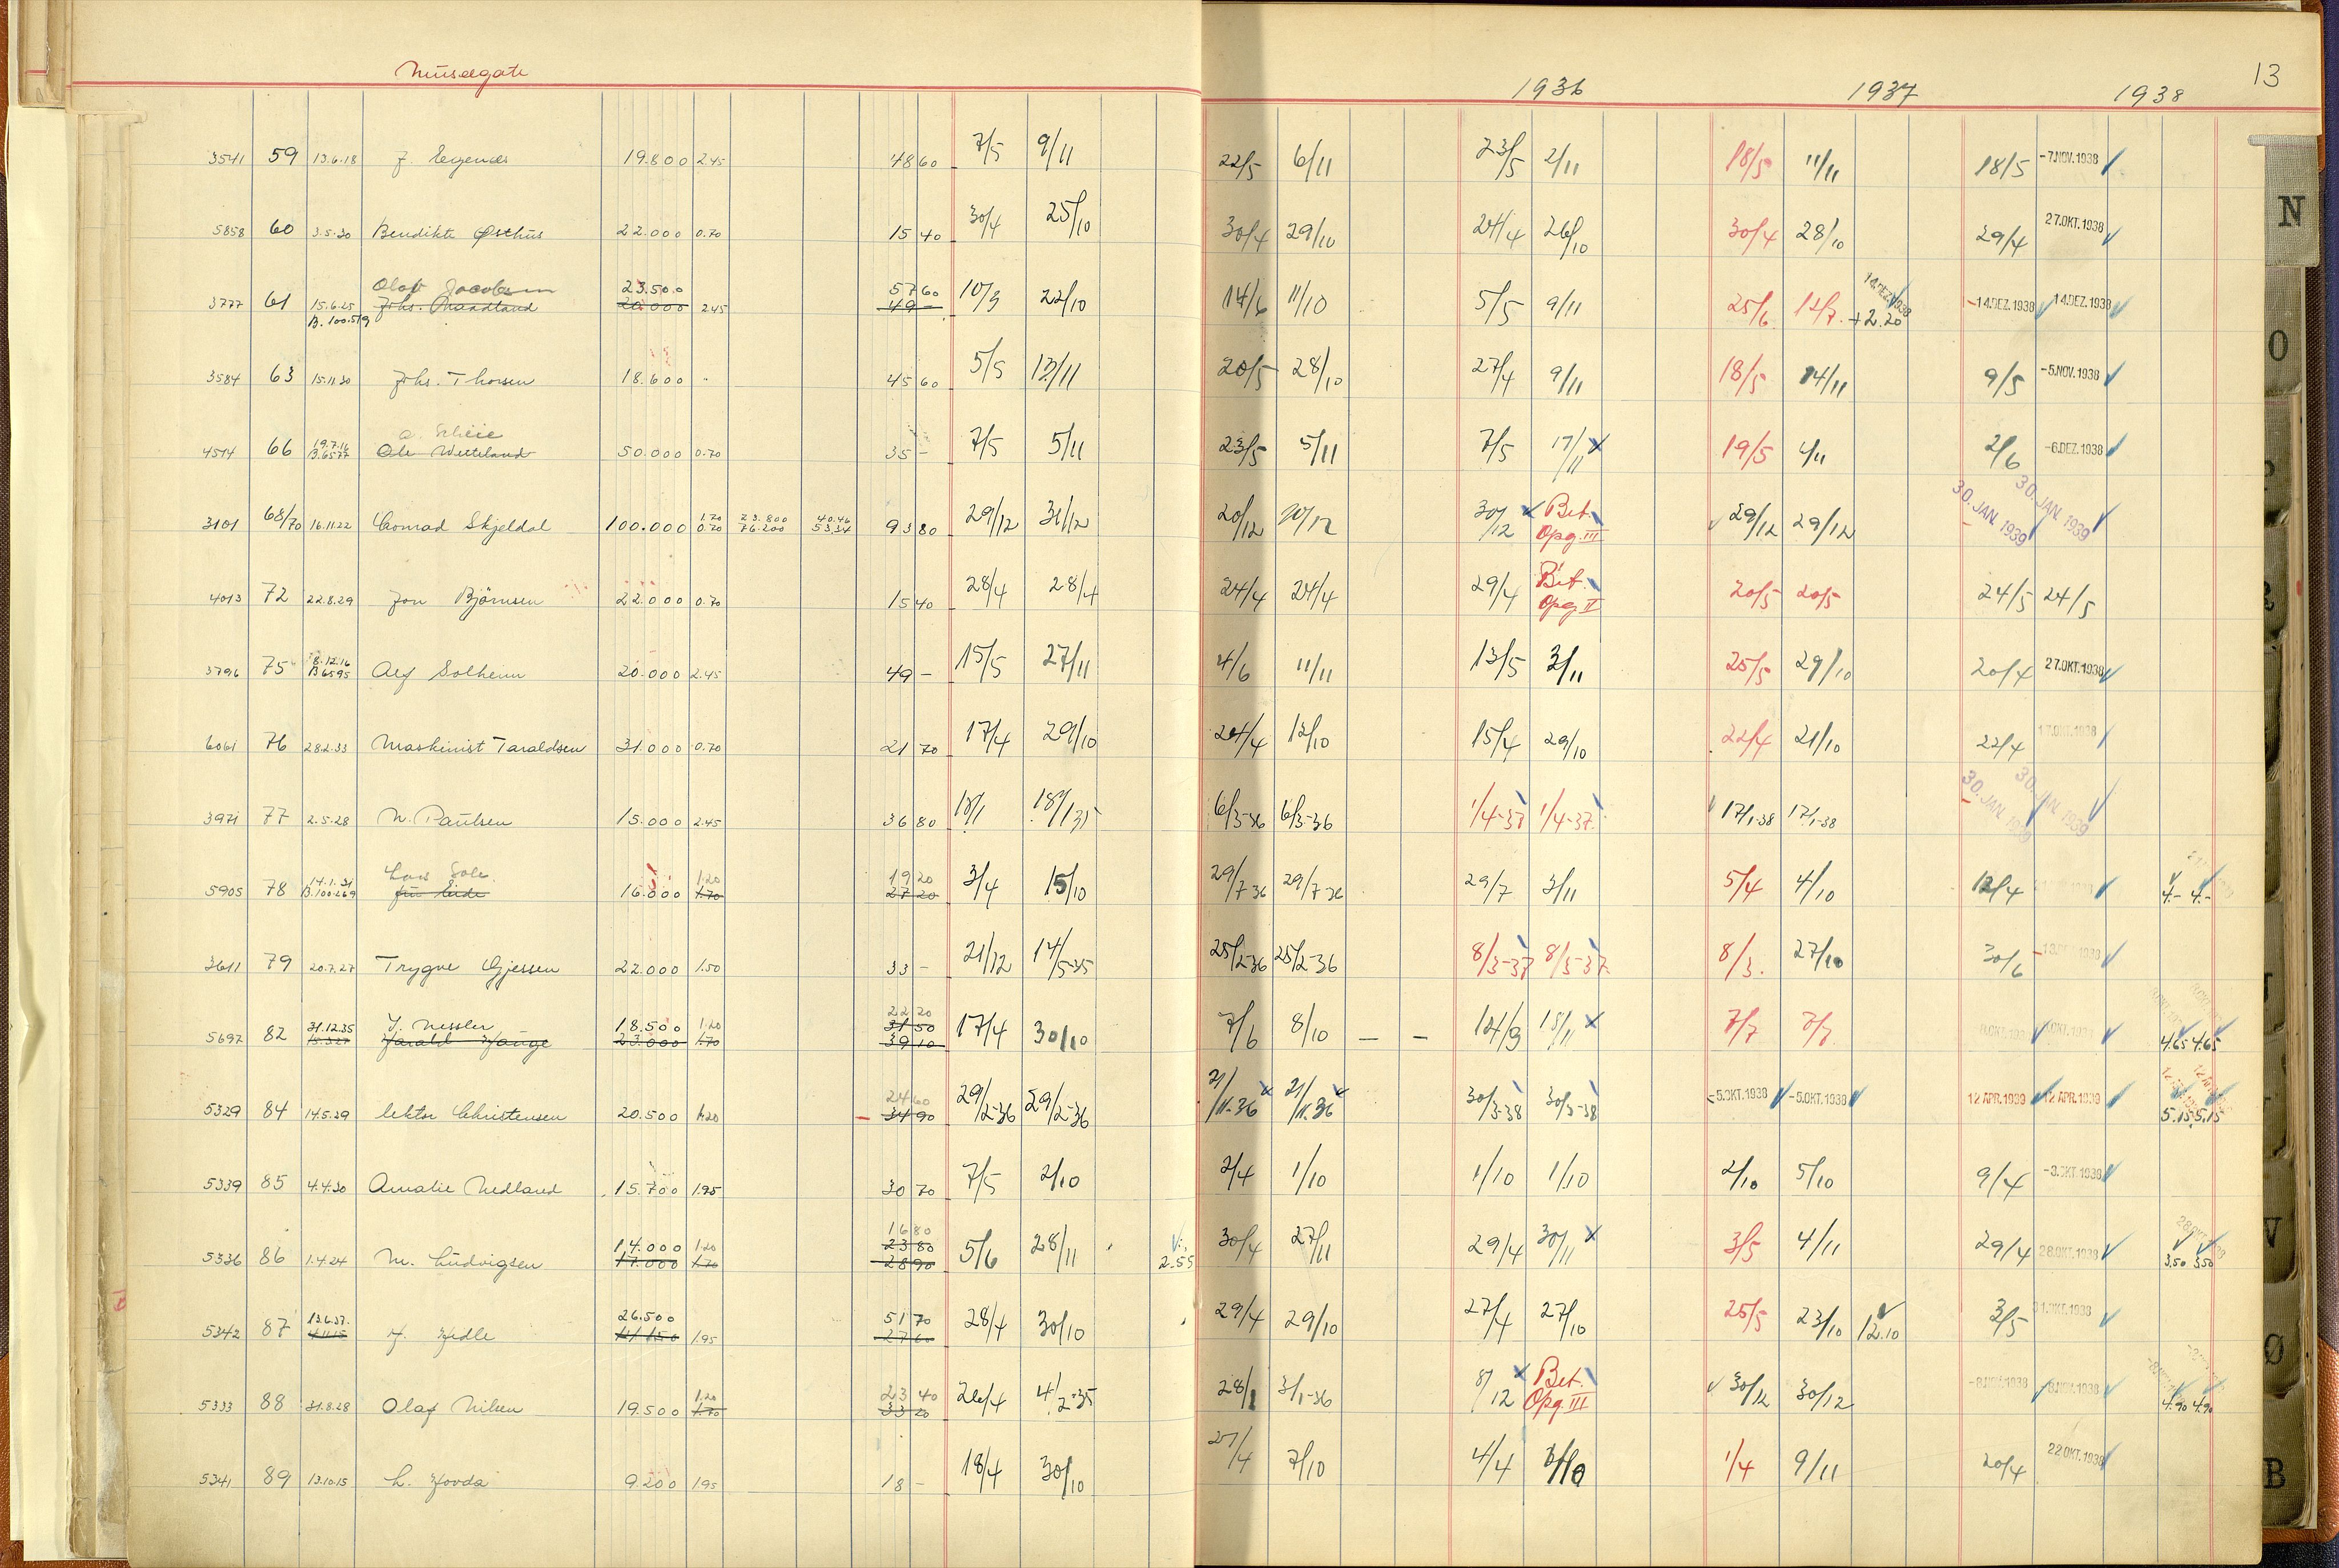 Museegate
1936 1937 1938 13
3541 59 13.6.18 19.800 2.45 48 60 7/5 9/11 22/5 6/11 23/5 2/11 18/5 11/11 18/5 -7.NOV.1938
5858 60 3.5.30 Bendikte Østhus 22.000 0.70 15 40 30/4 25/10 30/4 29/10 24/4 26/10 30/4 28/10 29/4 27.OKT.1938
Olav Jacobsen 23.500 57 60 14.DEZ.1938
3777 61 15.6.25 20.000 2.45 49 - 10/9 22/10 14/6 11/10 5/5 9/11 25/6 12/7 +2.20 -14.DEZ.1938 14.DEZ.1938
B.100.519
3584 63 15.11.30 Johs. Thorsen 18.600 45 60 5/5 13/11 20/5 28/10 27/4 9/11 18/5 14/11 9/5 -5.NOV.1938
19.7.16
4514 66 B.6577 50.000 0.70 35 - 7/5 5/11 23/5 5/11 7/5 17/11 19/5 4/11 2/6 -6.DEZ.1938
3101 68/70 16.11.22 Conrad Skjeldal 100.000 1.70 0.70 23.800 76.200 40.46 53.34 93 80 29/12 31/12 20/12 20/12 30/12 Bet. Opg. III 29/12 29/12 30.JAN.1939 30.JAN.1939
4013 72 22.8.29 Jon Björnsen 22.000 0.70 15 40 28/4 28/4 24/4 24/4 29/4 Bet. Opg II 20/5 20/5 24/5 24/5
8.12.16
3796 75 B.6595 Alf Solheim 20.000 2.45 49 - 15/5 27/11 4/6 11/11 13/5 3/11 25/5 29/10 20/4 27.OKT.1938
6061 76 28.2.33 Maskinist Taraldsen 31.000 0.70 21 70 17/4 29/10 24/4 12/10 15/4 29/10 22/4 21/10 22/4 17.OKT.1938
3971 77 2.5.28 N. Paulsen 15.000 2.45 36 80 18/1 18/1 35 6/3-36 6/3-36 1/4-37 1/4-37 17/1-38 17/1-38 30.JAN.1939 30.JAN.1939
14.1.31 1.20 19 20
5905 78 B.100.269 16.000 1.70 27 20 3/4 15/10 29/7-36 29/7-36 29/7 3/11 5/4 4/10 12/4 4.- 4.-
3611 79 20.7.27 Trygve Gjessen 22.000 1.50 33 - 21/12 14/5-35 25/2-36 25/2-36 8/3-37 8/3-37 8/3. 27/10 30/6
22 20
31.12.35 J. Nessler 18.500 1.20 31 50
5697 82 15.3.27 Harald Hauge 23.000 1.70 39 10 17/4 30/10 7/6 8/10 - - 14/9 18/11 7/7 7/7 4.65 4.65
24 60
5329 84 14.5.29 lektor Christensen 20.500 1.20 34 90 29/2-36 29/2-36 21/11-36 21/11-36 30/3-38 30/3-38 -5.OKT.1938 -5.OKT.1938 12 APR.1939 12 APR.1939 5.15 5.15
5339 85 4.4.30 Amalie Nedland 15.700 1.95 30 70 7/5 2/10 2/4 1/10 1/10 1/10 2/10 5/10 9/4 -3.OKT.1938
16 80
14.000 1.20 23 80
5336 86 1.4.24 M. Ludvigsen 17.000 1.70 28 90 5/6 28/11 2.55 30/4 27/11 29/4 30/11 3/5 4/11 29/4 28.OKT.1938 3.50 3.50
13.6.37. 26.500 51 70
5342 87 4.11.15 H. Hedle 14.150 1.95 27 60 28/4 30/10 29/4 29/10 27/4 27/10 25/5 23/10 12.10 3/5 31.OKT.1938
1.20 23 40
5333 88 31.8.28 Olaf Nilsen 19.500 1.70 33 20 26/4 4/2-35 28/1 3/1-36 8/12 Bet. Opg. III 30/12 30/12 -8.NOV.1938 -8.NOV.1938 4.90 4.90
5341 89 13.10.15 L. Hovda 9.200 1.95 18 - 18/4 30/10 27/4 7/10 4/4 3/10 1/4 9/11 20/4 22.OKT.1938
N
O
V
Ø
B